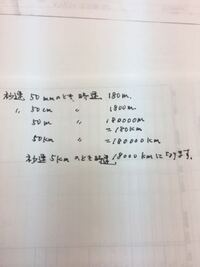 秒速 50mmのとき 時速 180m.
〃 50cm 〃 1800m.
50m 〃 180000m
=180Km
50Km 〃 =180000Km
秒速5Kmのとき時速,18000Kmになります。